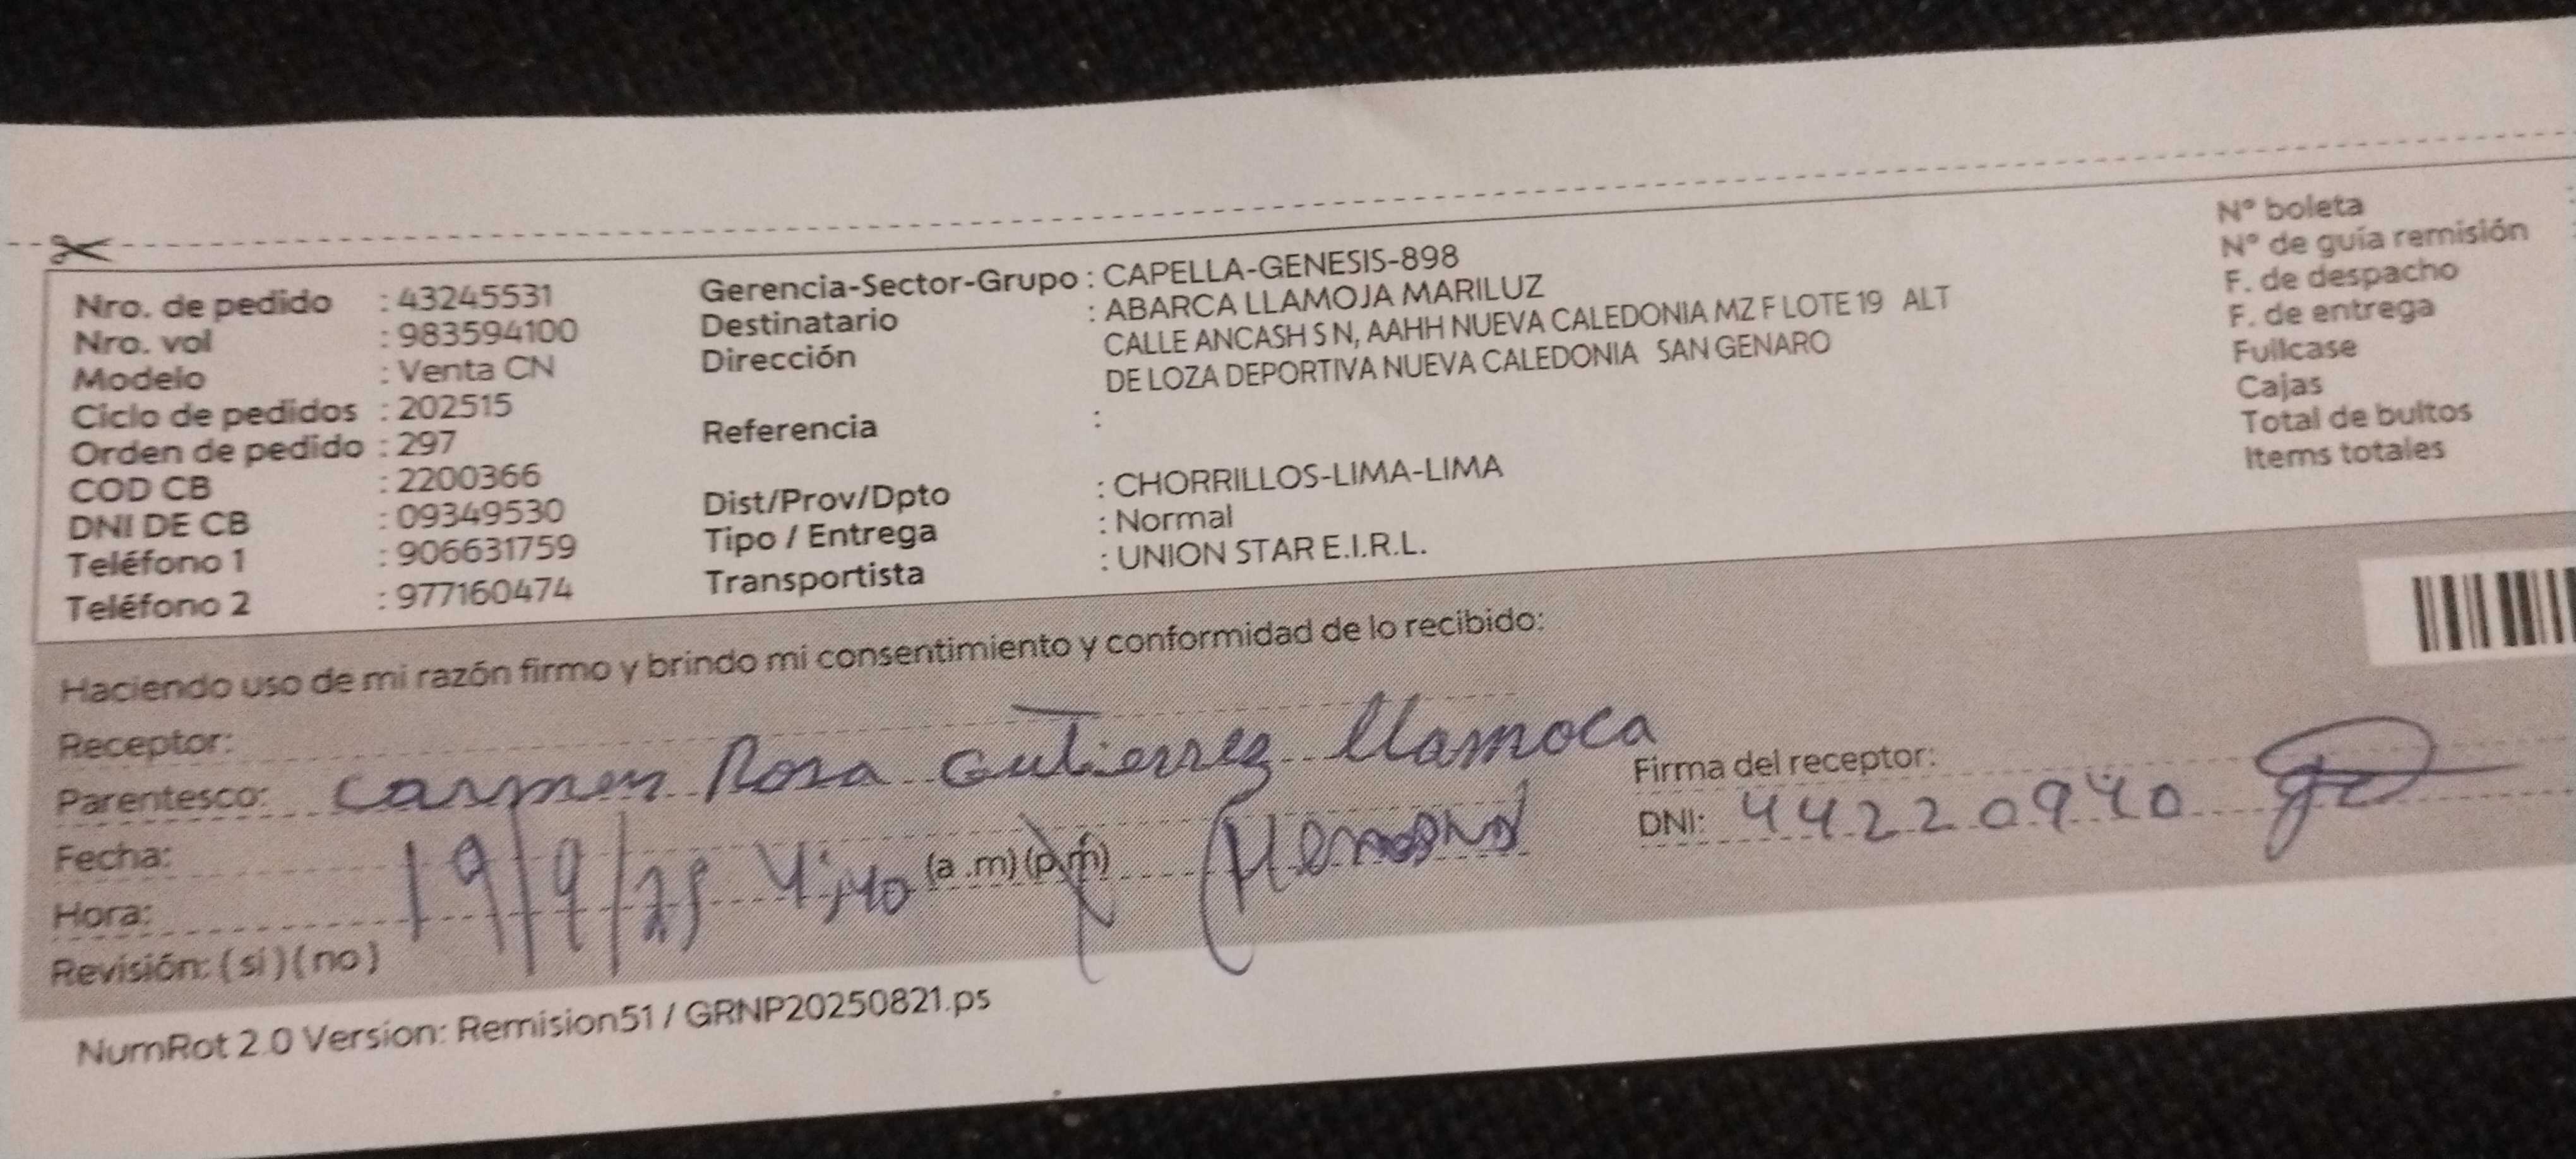 Nro. de pedido : 43245531
Nro. vol : 983594100
Modelo : Venta CN
Ciclo de pedidos : 202515
Orden de pedido : 297
COD CB : 2200366
DNI DE CB : 09349530
Teléfono 1 : 906631759
Teléfono 2 : 977160474
Gerencia-Sector-Grupo : CAPELLA-GENESIS-898
Destinatario : ABARCA LLAMOJA MARILUZ
Dirección CALLE ANCASH S N, AAHH NUEVA CALEDONIA MZ F LOTE 19 ALT
DE LOZA DEPORTIVA NUEVA CALEDONIA SAN GENARO
Referencia :
Dist/Prov/Dpto : CHORRILLOS-LIMA-LIMA
Tipo / Entrega : Normal
Transportista : UNION STAR E.I.R.L.
N° boleta
N° de guía remisión
F. de despacho
F. de entrega
Fullcase
Cajas
Total de bultos
Items totales
Haciendo uso de mi razón firmo y brindo mi consentimiento y conformidad de lo recibido:
Receptor:
Parentesco: Carmen Rosa Gutierrez llamoca
Fecha: 19/9/25 4:40 (a .m) (p.m)
Hora:
Revisión: ( si ) ( no )
Firma del receptor:
DNI: 44220940
NumRot 2.0 Version: Remision51 / GRNP20250821.ps